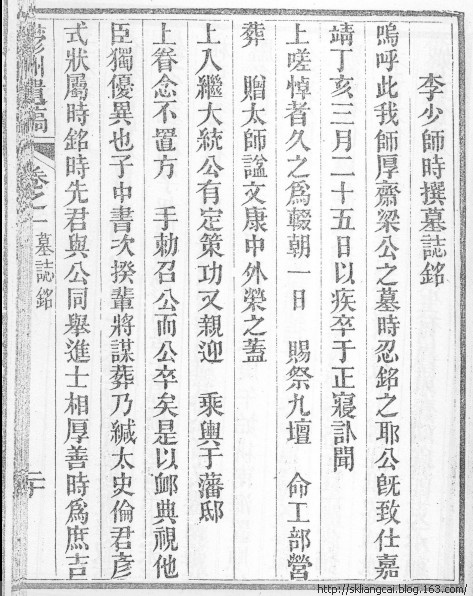 李少師時撰墓誌銘
嗚呼此我師厚齋梁公之墓時忍銘之耶公旣致仕嘉
靖丁亥三月二十五日以疾卒于正寢訃聞
上嗟悼者久之爲輟朝一日　賜祭九壇　命工部營
葬　贈太師諡文康中外榮之蓋
上入繼大統公有定策功又親迎　乘輿于藩邸
上眷念不置方　手勅召公而公卒矣是以䘏典視他
臣獨優異也子中書次揆輩將謀葬乃緘太史倫君彥
式狀屬時銘時先君與公同舉進士相厚善時爲庶吉
洲遺稿　卷之　墓誌銘
http://skliangcai.blog.163.com/